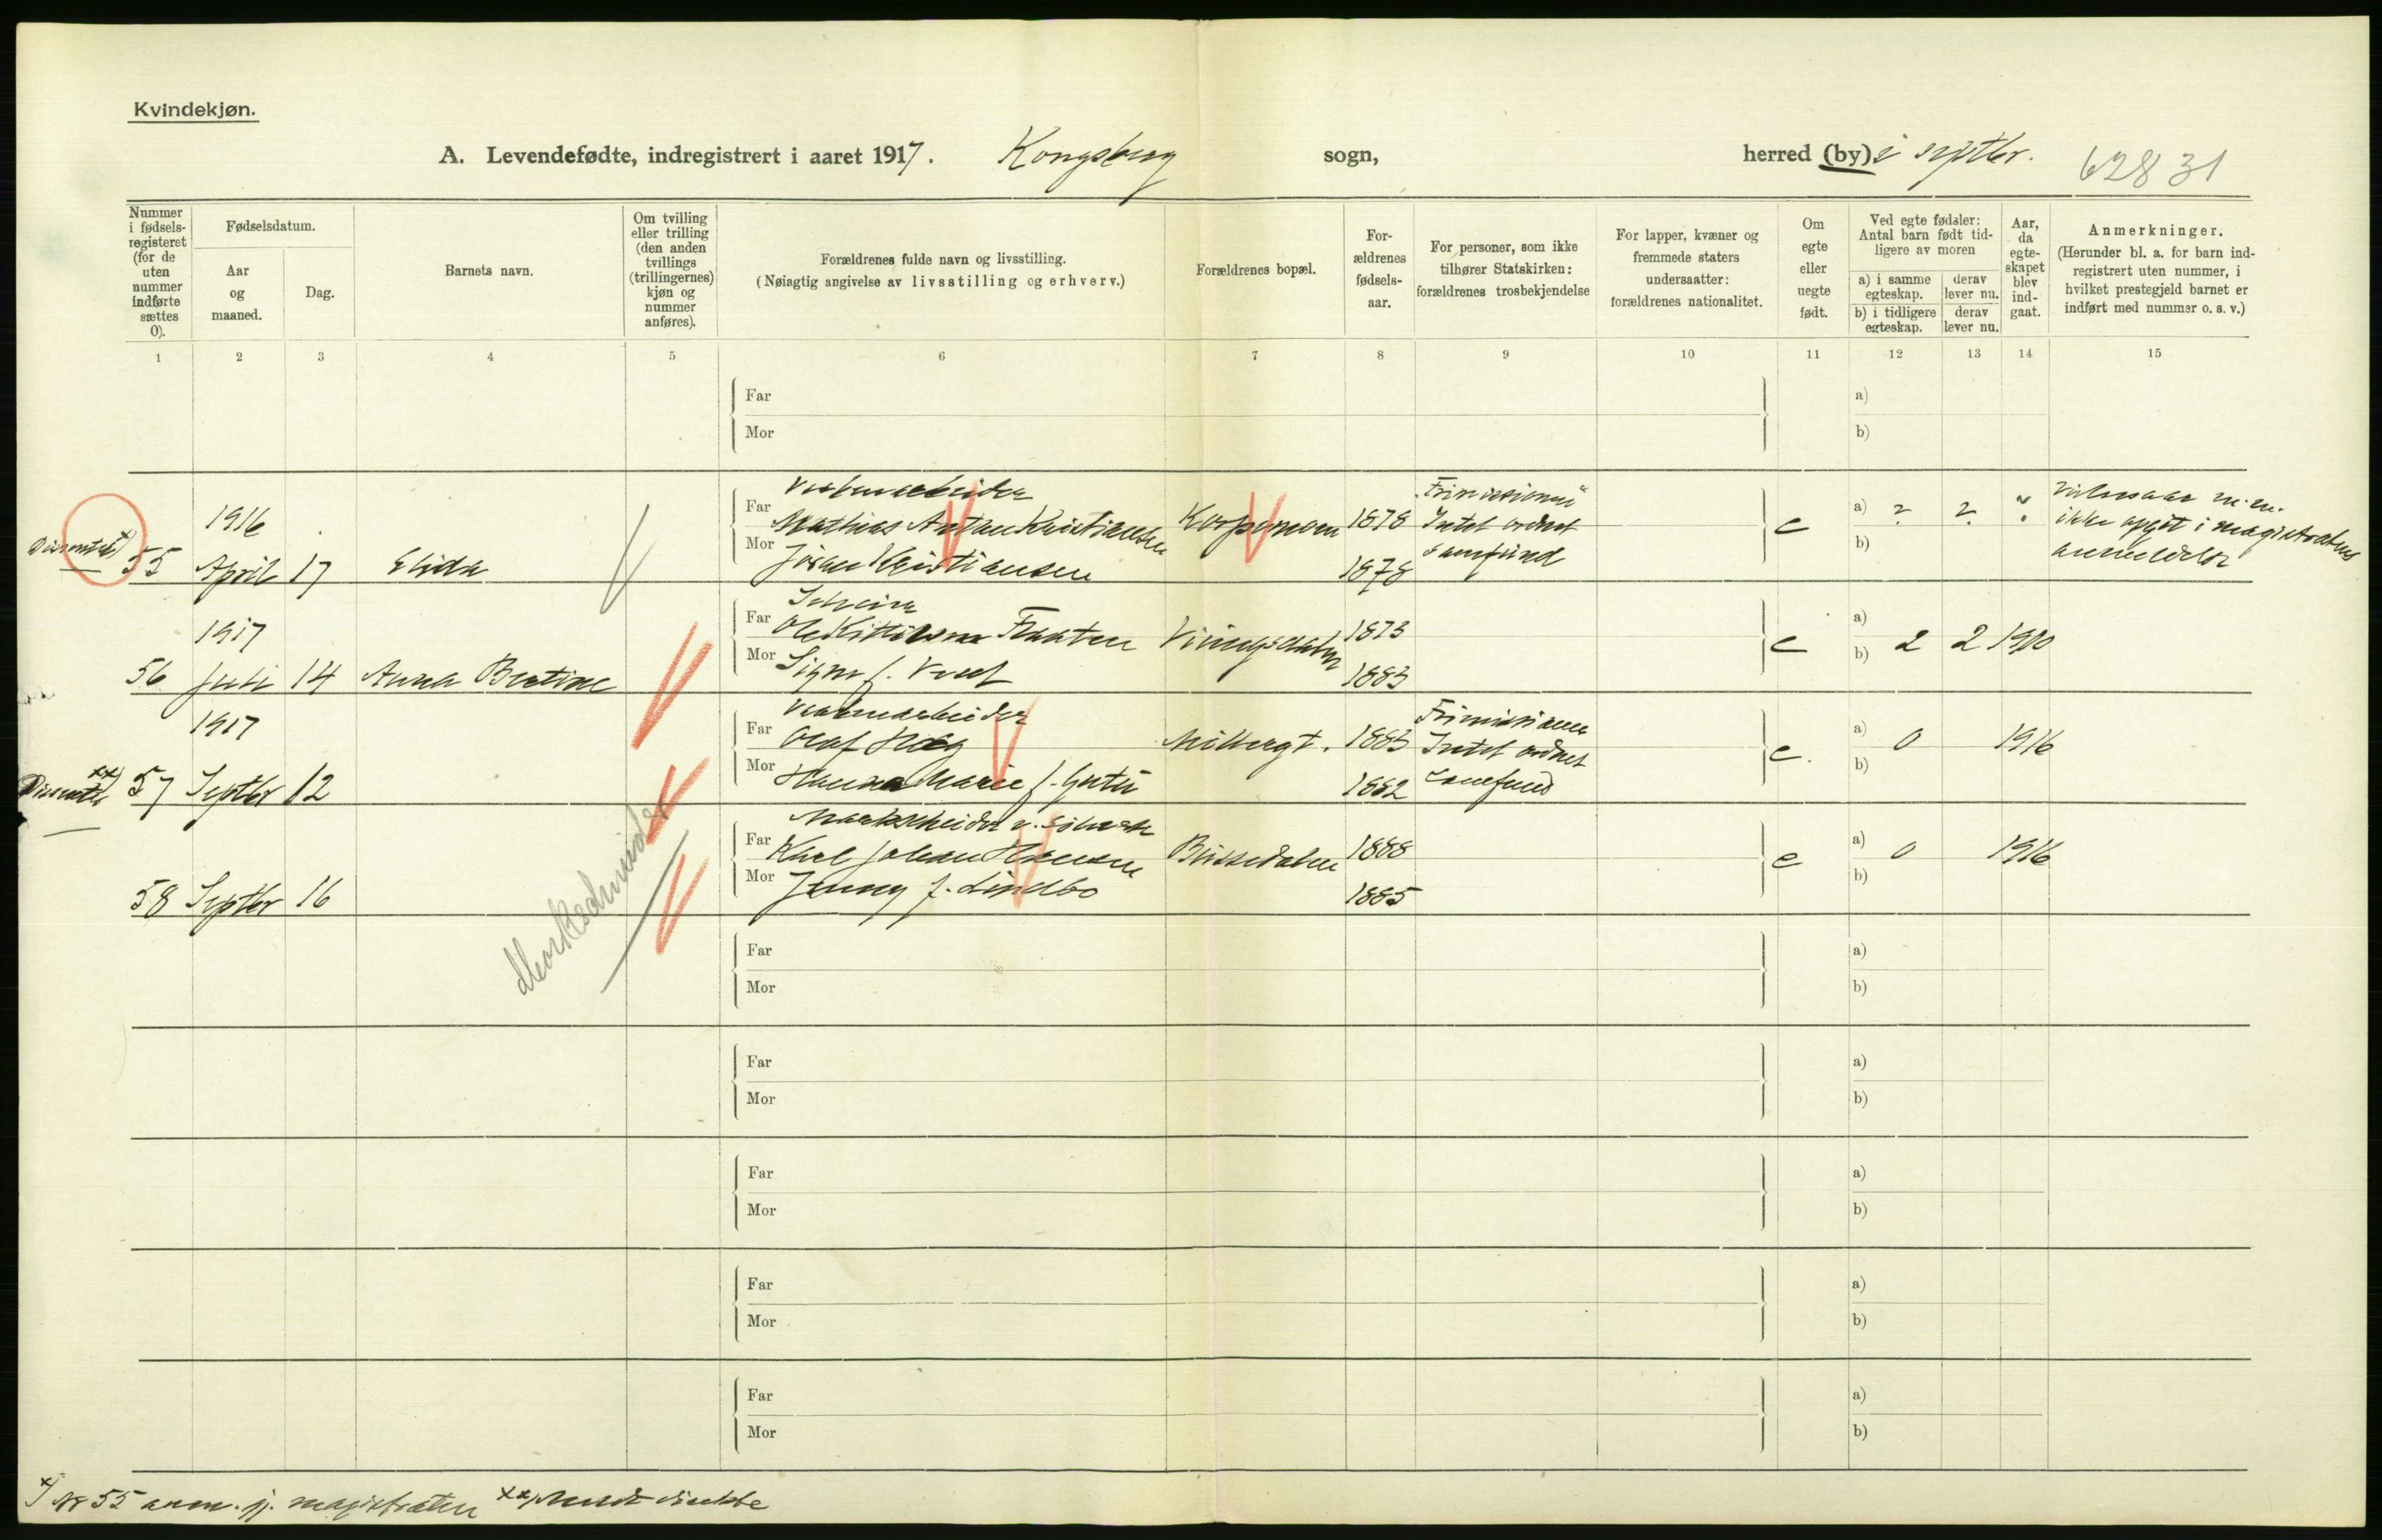 Kvindekjøn.
A. Levendefødte, indregistrert i aaret 1917. Kongsberg sogn, herred (by) i septbr. 62831
Nummer i fødsels-registeret (for de uten nummer indførte sættes 0).
Fødselsdatum.
Aar og maaned.
Dag.
Barnets navn.
Om tvilling eller trilling (den anden tvillings (trillingernes) kjøn og nummer anføres).
Forældrenes fulde navn og livsstilling.
(Nøiagtig angivelse av livsstilling og erhverv.)
Forældrenes bopæl.
For-ældrenes fødsels-aar.
For personer, som ikke tilhører Statskirken: forældrenes trosbekjendelse
For lapper, kvæner og fremmede staters undersaatter: forældrenes nationalitet.
Om egte eller uegte født.
Ved egte fødsler: Antal barn født tid-ligere av moren
a) i samme egteskap.
derav lever nu.
b) i tidligere egteskap.
derav lever nu.
Aar, da egte-skapet blev ind-gaat.
Anmerkninger.
(Herunder bl. a. for barn ind-registrert uten nummer, i hvilket prestegjeld barnet er indført med nummer o. s. v.)
1 2 3 4 5 6 7 8 9 10 11 12 13 14 15
Far a)
Mor b)
1916
55 April 17 Elida
Far Mathias Anton Kristiansen 1878 Intet ordnet samfund e a) ? ?
Mor Kristiansen 1878 b)
ikke opgit i magistratens
1917
56 Juli 14 Anna Bertine
Far Ole 1873 e a)
Mor Signe f. 1883 b) 2 2 1910
1917
57 Septbr 12
Far Olaf 1883 Intet ordnet samfund e. a) 0 1916
Mor Hanna Marie f. 1882 b)
58 Septbr 16
Far Karl Johan Hansen 1888 e a) 0 1916
Mor Jenny f. Lindbo 1885 b)
Markscheider
Far a)
Mor b)
Far a)
Mor b)
Far a)
Mor b)
Far a)
Mor b)
Far a)
Mor b)
x) Nr 55 anm. gj. magistraten xx) direkte